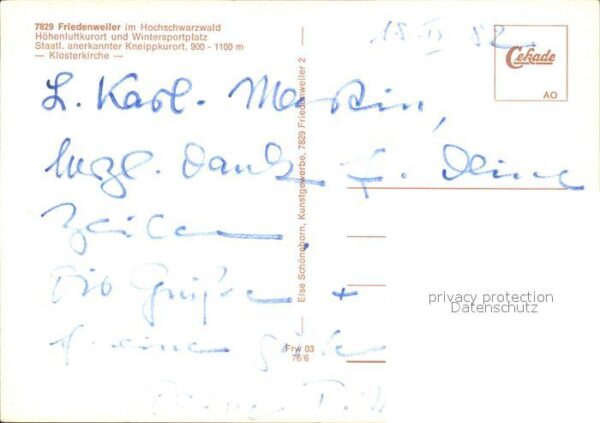 7829 Friedenweiler im Hochschwarzwald
Höhenluftkurort und Wintersportplatz
Staatl. anerkannter Kneippkurort, 900 - 1100 m
— Klosterkirche —
18 II 82
Cekade
AO
L. Karl-Martin,
herzl. Dank f. Deine
Zeilen,
Grüße +
f. eine gute
Else Schöneborn, Kunstgewerbe, 7829 Friedenweiler 2
Frw 03
76/6
privacy protection
Datenschutz